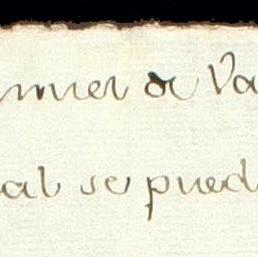 de Va
al se pued